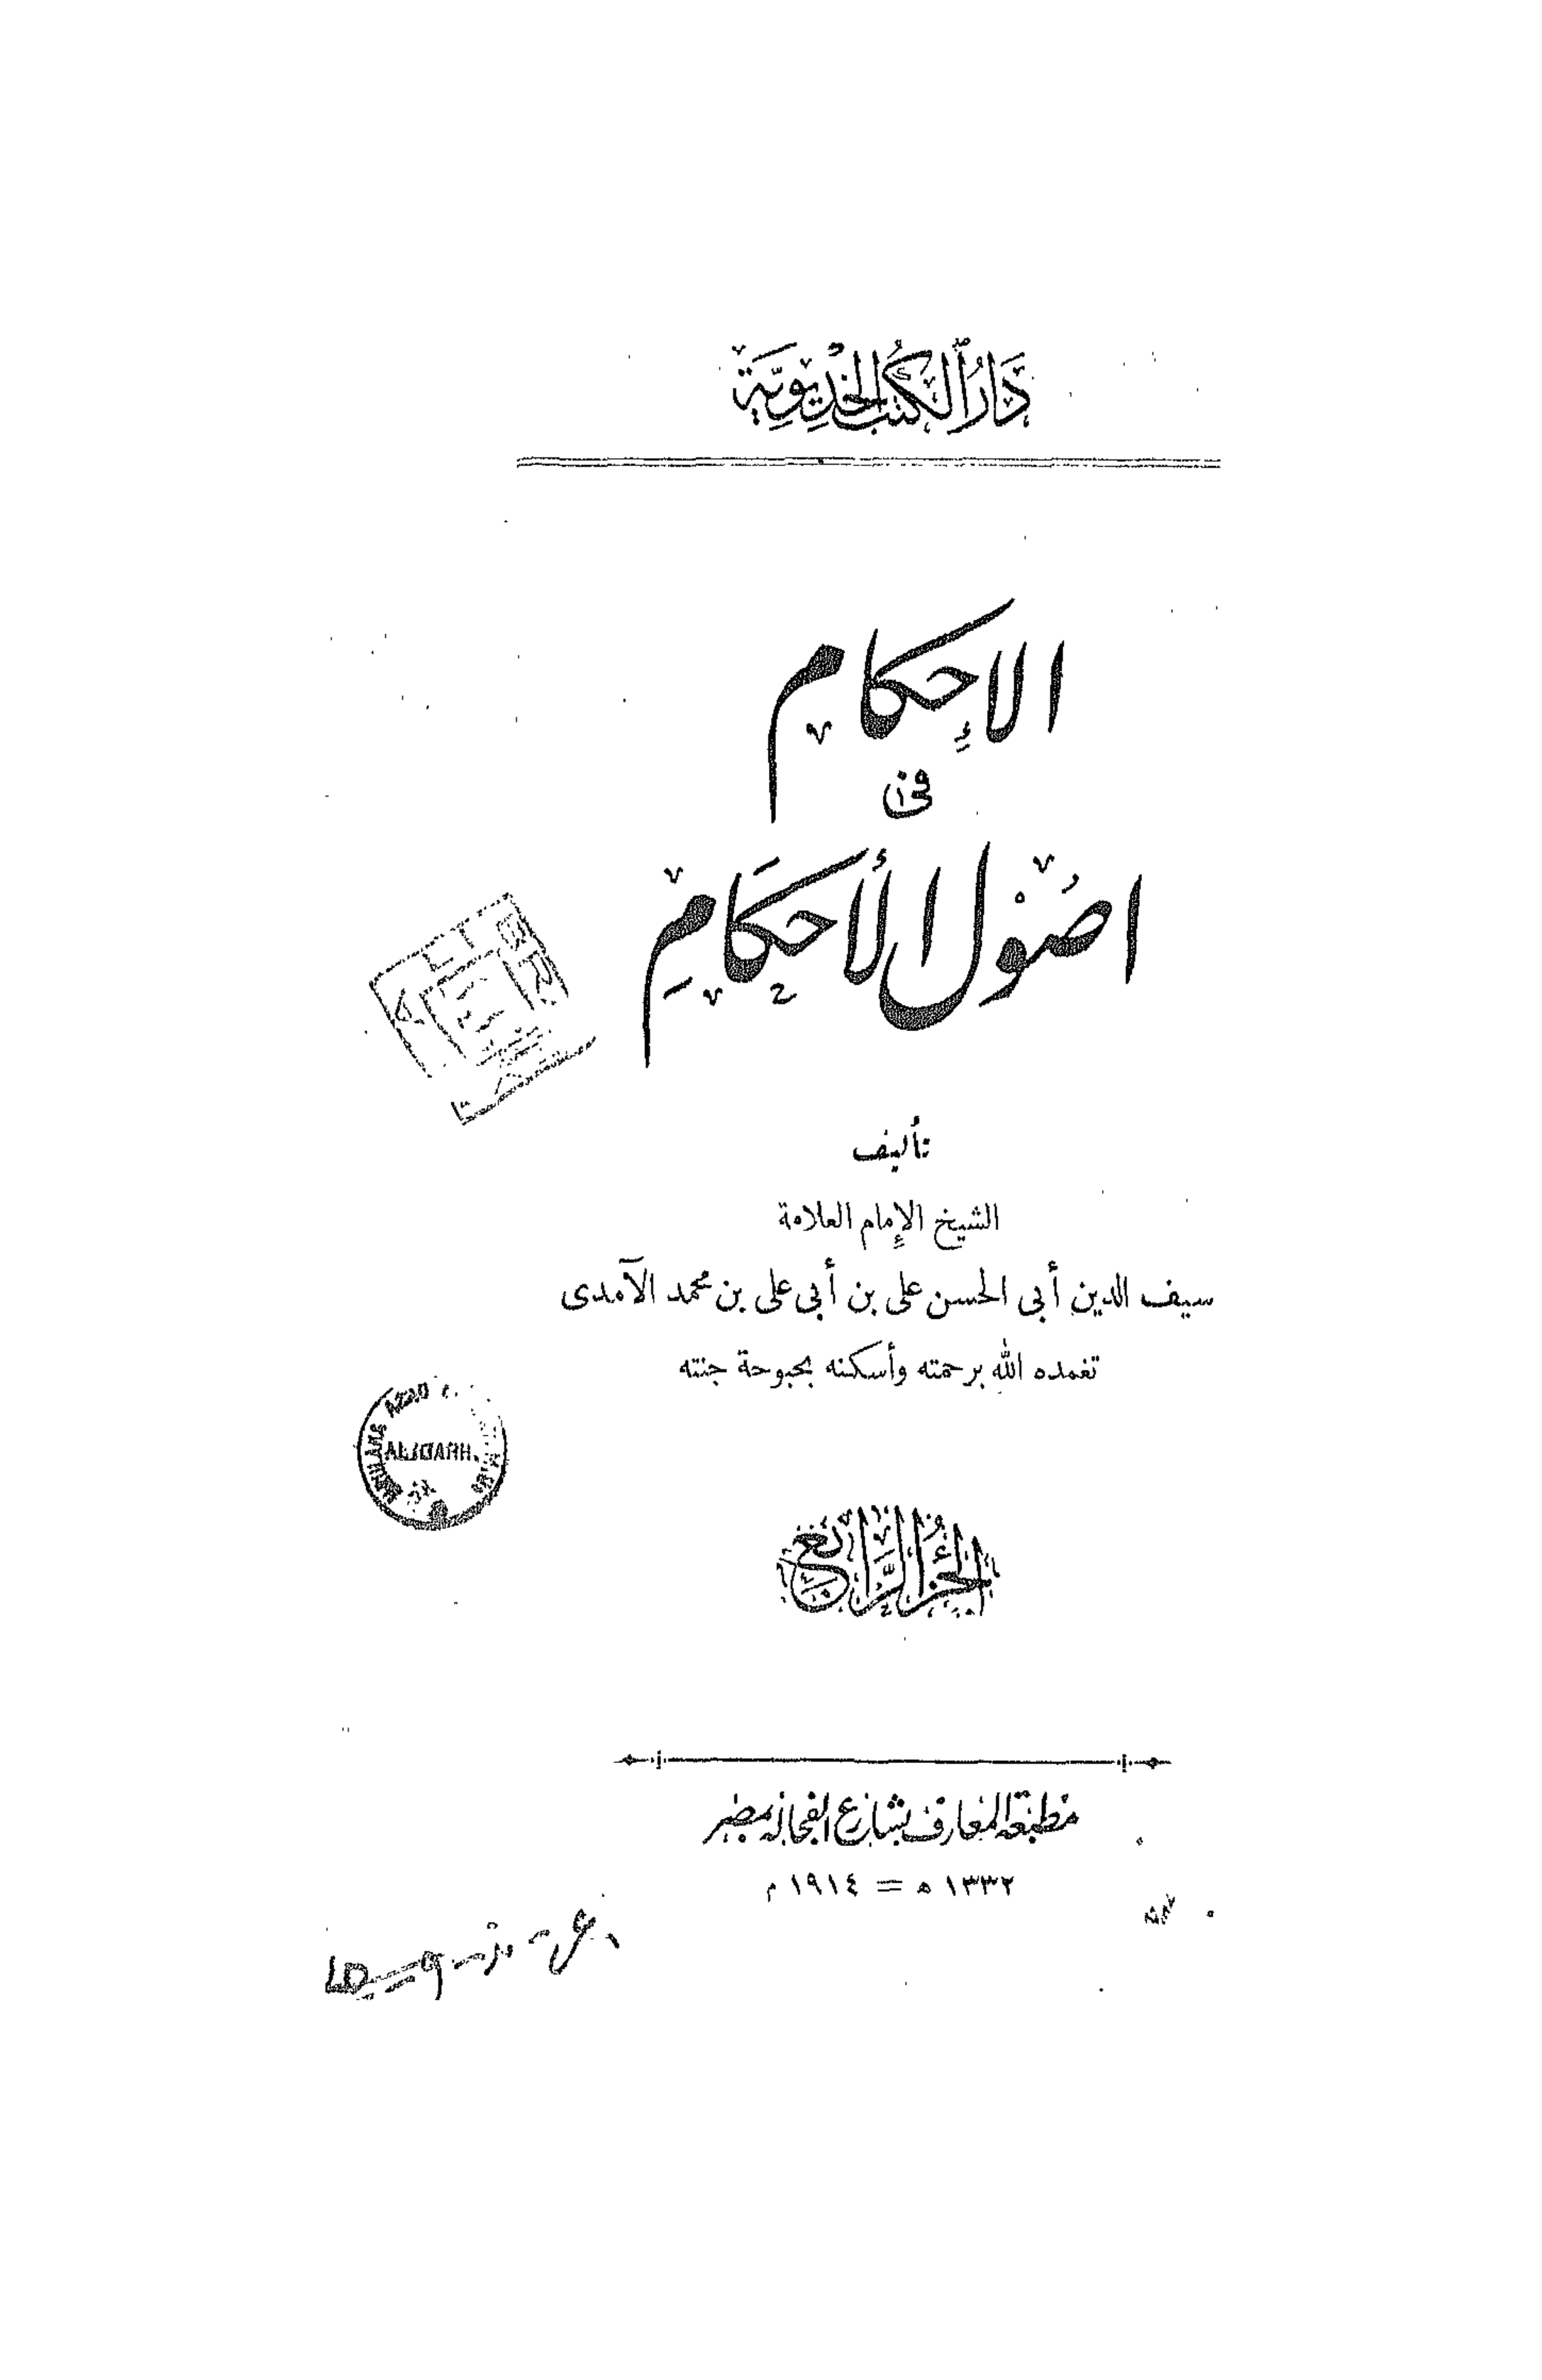 دَارُ الْكُتُبِ الْخِدِيوِيَّةِ
الإِحكام
فى
اصُوْل الأَحكَامِ
تأليف
الشيخ الإِمام العلامة
سيف الدين أبى الحسن على بن أبى على بن محمد الآمدى
تغمده الله برحمته وأسكنه بحبوحة جنته
ALIGARH.
الجُزءُ الرَّابِعُ
مطبعة المعارف بشارع الفجاله بمصر
١٣٣٢ ه = ١٩١٤ م